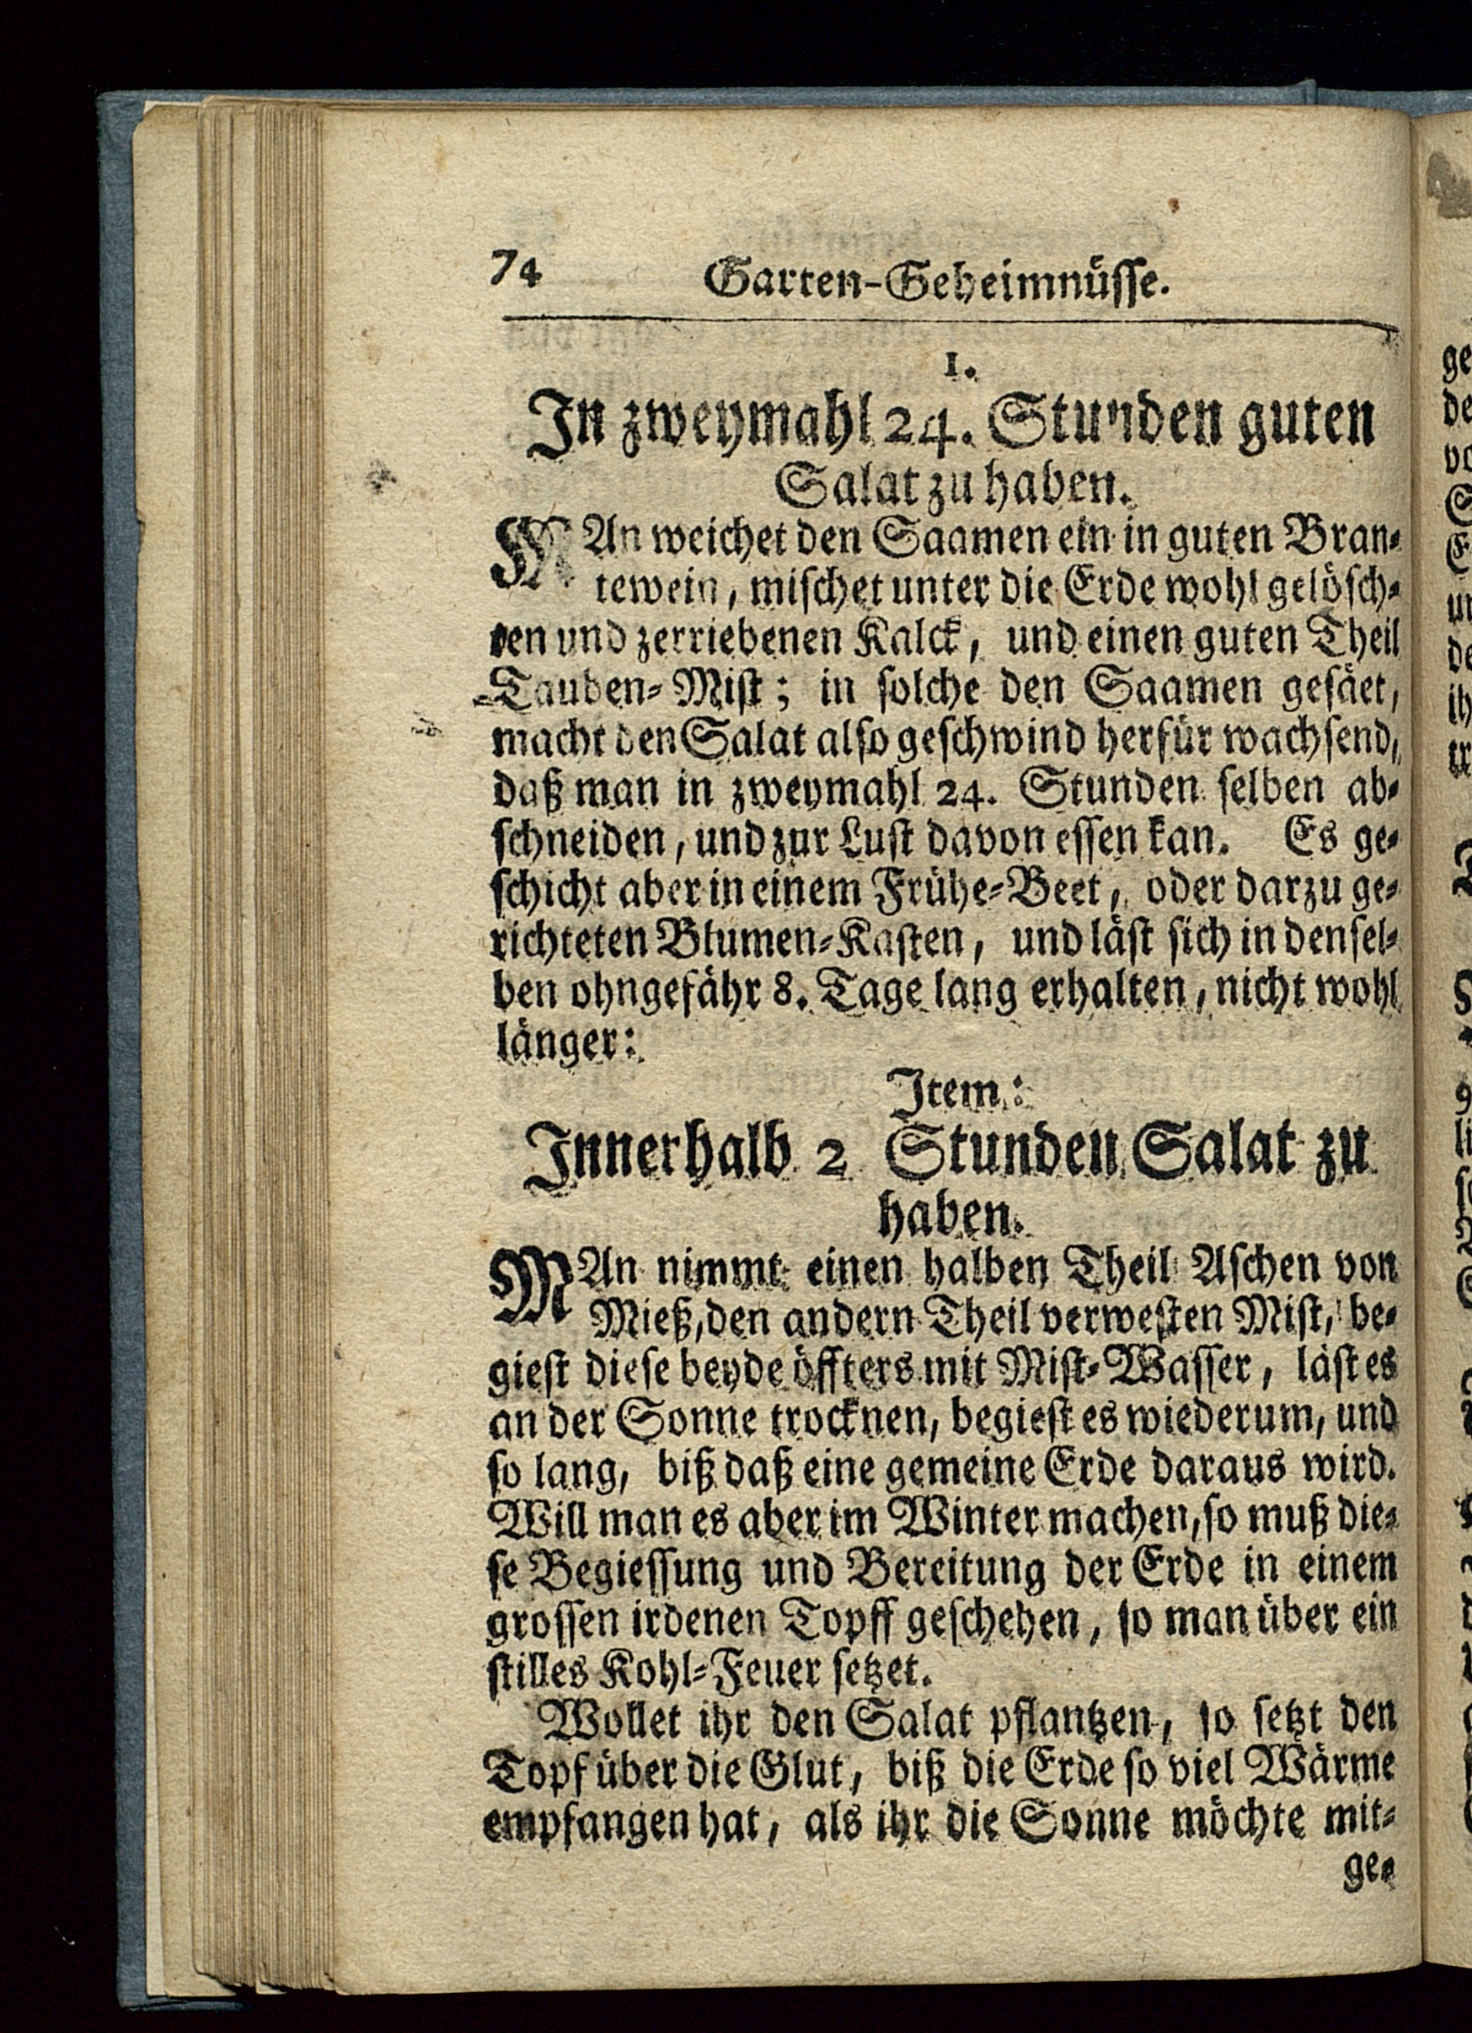 74 Garten-Geheimnüsse.
1.
In zweymahl 24. Stunden guten
Salat zu haben.
MAn weichet den Saamen ein in guten Bran-
tewein, mischet unter die Erde wohl gelösch-
ten und zerriebenen Kalck, und einen guten Theil
Tauben-Mist; in solche den Saamen gesäet,
macht den Salat also geschwind herfür wachsend,
daß man in zweymahl 24. Stunden selben ab-
schneiden, und zur Lust davon essen kan. Es ge-
schicht aber in einem Frühe-Beet, oder darzu ge-
richteten Blumen-Kasten, und läst sich in densel-
ben ohngefähr 8. Tage lang erhalten, nicht wohl
länger:
Item:
Innerhalb 2 Stunden Salat zu
haben.
MAn nimmt einen halben Theil Aschen von
Mieß, den andern Theil verwesten Mist, be-
giest diese beyde öffters mit Mist-Wasser, läst es
an der Sonne trocknen, begiest es wiederum, und
so lang, biß daß eine gemeine Erde daraus wird.
Will man es aber im Winter machen, so muß die-
se Begiessung und Bereitung der Erde in einem
grossen irdenen Topff geschehen, so man über ein
stilles Kohl-Feuer setzet.
Wollet ihr den Salat pflantzen, so setzt den
Topf über die Glut, biß die Erde so viel Wärme
empfangen hat, als ihr die Sonne möchte mit-
ge-